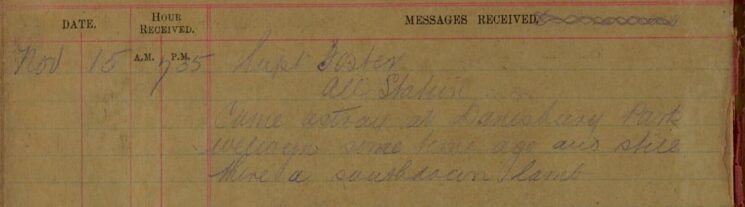 DATE. HOUR RECEIVED. MESSAGES RECEIVED.
A.M. P.M.
Nov 15 7 35 Supt Foster
All Station
Came astray at Danesbury Park
Welwyn some time ago and still
there a southdown lamb